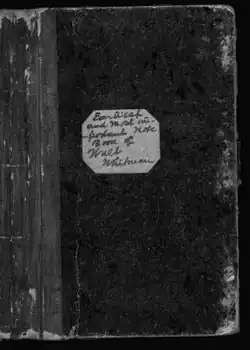 Earliest
and most im-
portant Note
Book of
Walt
Whitman